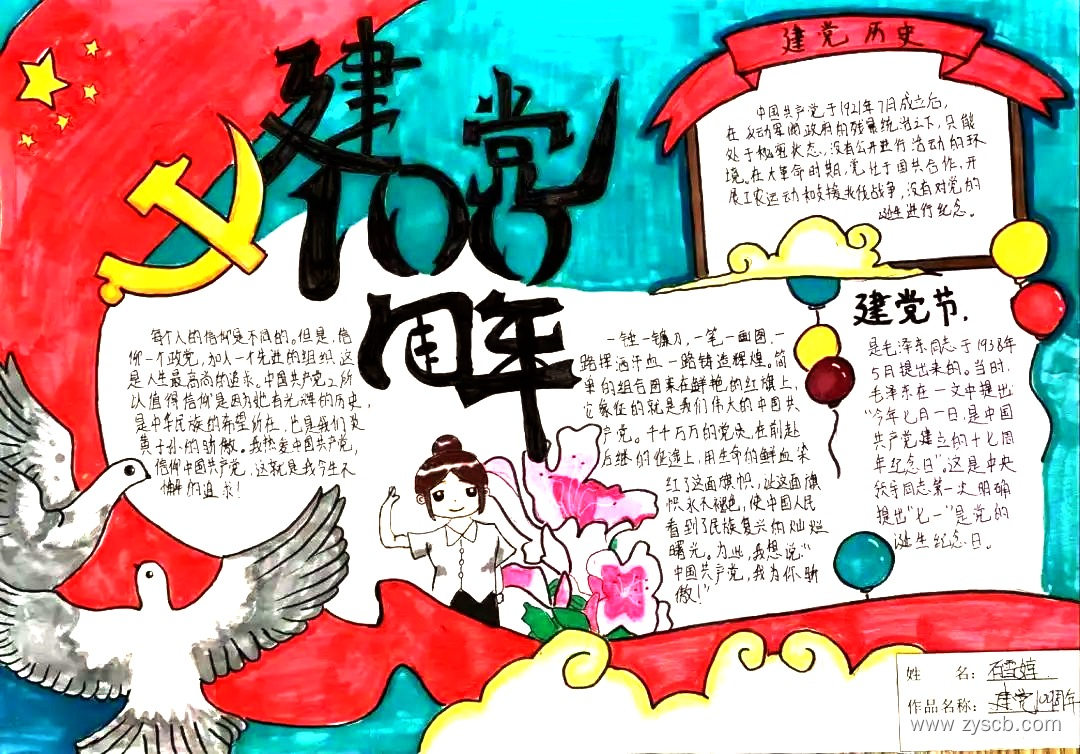 建党
100
周年
建党历史
中国共产党于1921年7月成立后，
在反动军阀政府的残暴统治之下，只能
处于秘密状态，没有公开进行活动的环
境。在大革命时期，党忙于国共合作，开
展工农运动和支援北伐战争，没有对党的
诞生进行纪念。
每个人的信仰是不同的。但是，信
仰一个政党，加入一个先进的组织，这
是人生最高尚的追求。中国共产党之所
以值得信仰是因为他有光辉的历史，
是中华民族的希望所在，也是我们炎
黄子孙的骄傲。我热爱中国共产党，
信仰中国共产党，这就是我今生不
懈的追求！
一锤一镰刀，一笔一画图，一
路挥洒汗血，一路铸造辉煌。简
单的组合图案在鲜艳的红旗上，
它象征的就是我们伟大的中国共
产党。千千万万的党员，在前赴
后继的征途上，用生命的鲜血染
红了这面旗帜，让这面旗
帜永不褪色，使中国人民
看到了民族复兴的灿烂
曙光。为此，我想说：“
中国共产党，我为你骄
傲！”
建党节.
是毛泽东同志于1938年
5月提出来的。当时，
毛泽东在一文中提出
“今年七月一日，是中国
共产党建立的十七周
年纪念日”。这是中央
领导同志第一次明确
提出“七一”是党的
诞生纪念日。
姓 名：石雪婷
作品名称：建党100周年
www.zyscb.com